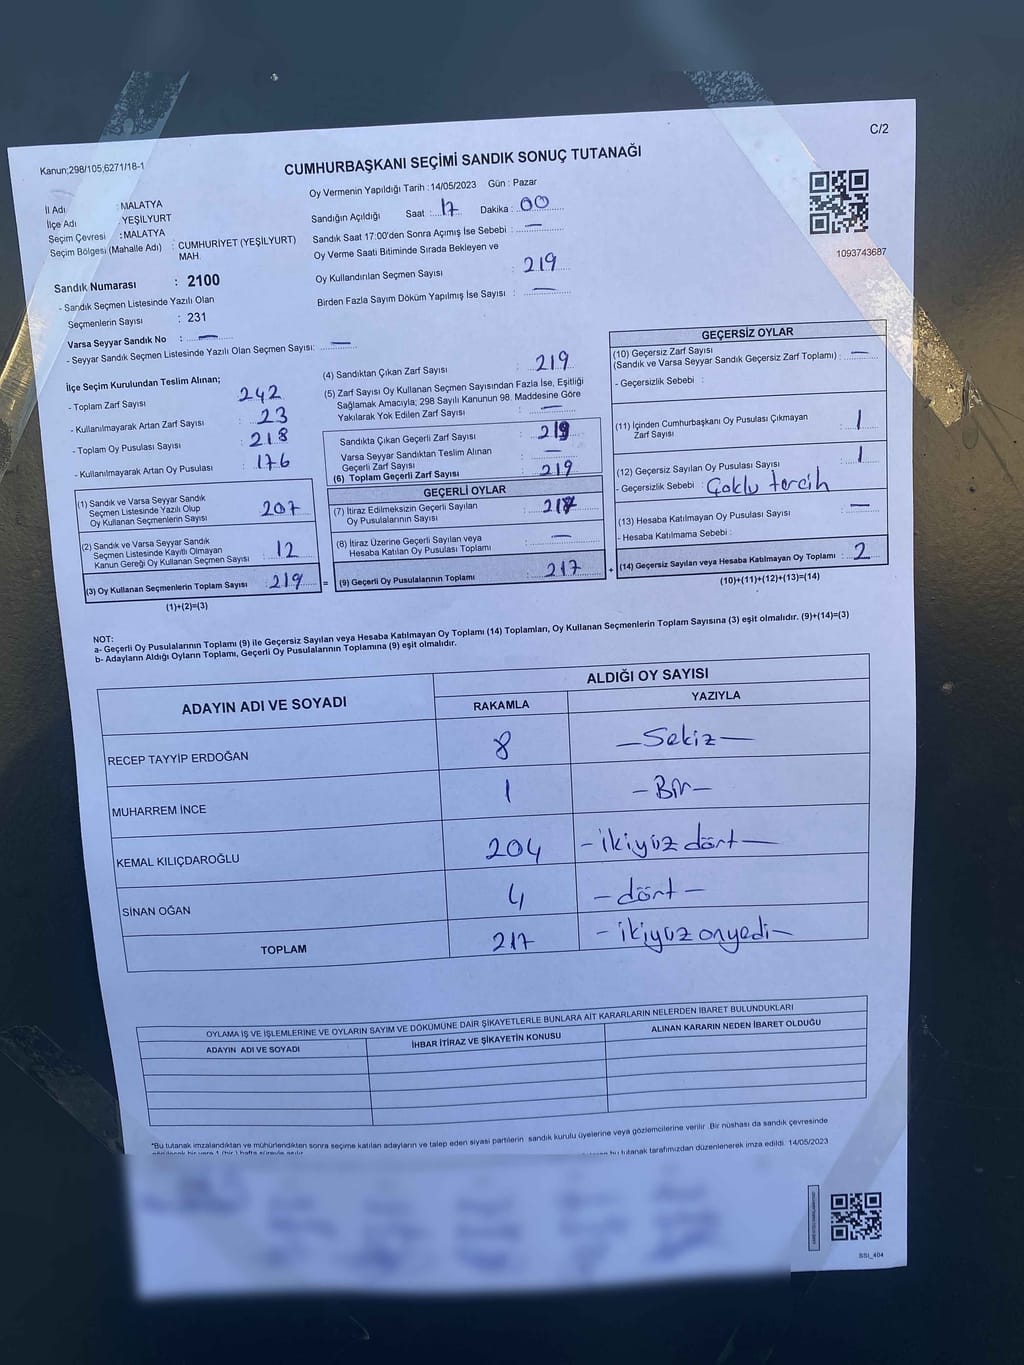 C/2
Kanun;298/105,6271/18-1
CUMHURBAŞKANI SEÇİMİ SANDIK SONUÇ TUTANAĞI
Oy Vermenin Yapıldığı Tarih : 14/05/2023 Gün : Pazar
İl Adı : MALATYA
İlçe Adı : YEŞİLYURT
Seçim Çevresi : MALATYA
Seçim Bölgesi (Mahalle Adı) : CUMHURİYET (YEŞİLYURT) MAH.
Sandık Numarası : 2100
- Sandık Seçmen Listesinde Yazılı Olan
Seçmenlerin Sayısı : 231
Varsa Seyyar Sandık No : —
- Seyyar Sandık Seçmen Listesinde Yazılı Olan Seçmen Sayısı: —
Sandığın Açıldığı Saat : 17 Dakika : 00
Sandık Saat 17:00'den Sonra Açımış İse Sebebi : —
Oy Verme Saati Bitiminde Sırada Bekleyen ve
Oy Kullandırılan Seçmen Sayısı : 219
Birden Fazla Sayım Döküm Yapılmış İse Sayısı : —
1093743687
İlçe Seçim Kurulundan Teslim Alınan;
- Toplam Zarf Sayısı : 242
- Kullanılmayarak Artan Zarf Sayısı : 23
- Toplam Oy Pusulası Sayısı : 218
- Kullanılmayarak Artan Oy Pusulası : 176
(1) Sandık ve Varsa Seyyar Sandık
Seçmen Listesinde Yazılı Olup
Oy Kullanan Seçmenlerin Sayısı : 207
(2) Sandık ve Varsa Seyyar Sandık
Seçmen Listesinde Kayıtlı Olmayan
Kanun Gereği Oy Kullanan Seçmen Sayısı : 12
(3) Oy Kullanan Seçmenlerin Toplam Sayısı : 219 =
(1)+(2)=(3)
(4) Sandıktan Çıkan Zarf Sayısı : 219
(5) Zarf Sayısı Oy Kullanan Seçmen Sayısından Fazla İse, Eşitliği
Sağlamak Amacıyla; 298 Sayılı Kanunun 98. Maddesine Göre
Yakılarak Yok Edilen Zarf Sayısı : —
Sandıkta Çıkan Geçerli Zarf Sayısı : 219
Varsa Seyyar Sandıktan Teslim Alınan
Geçerli Zarf Sayısı : —
(6) Toplam Geçerli Zarf Sayısı : 219
GEÇERLİ OYLAR
(7) İtiraz Edilmeksizin Geçerli Sayılan
Oy Pusulalarının Sayısı : 217
(8) İtiraz Üzerine Geçerli Sayılan veya
Hesaba Katılan Oy Pusulası Toplamı : —
(9) Geçerli Oy Pusulalarının Toplamı : 217 +
GEÇERSİZ OYLAR
(10) Geçersiz Zarf Sayısı
(Sandık ve Varsa Seyyar Sandık Geçersiz Zarf Toplamı) : —
- Geçersizlik Sebebi :
(11) İçinden Cumhurbaşkanı Oy Pusulası Çıkmayan
Zarf Sayısı : 1
(12) Geçersiz Sayılan Oy Pusulası Sayısı : 1
- Geçersizlik Sebebi : Çoklu tercih
(13) Hesaba Katılmayan Oy Pusulası Sayısı : —
- Hesaba Katılmama Sebebi :
(14) Geçersiz Sayılan veya Hesaba Katılmayan Oy Toplamı : 2
(10)+(11)+(12)+(13)=(14)
NOT:
a- Geçerli Oy Pusulalarının Toplamı (9) ile Geçersiz Sayılan veya Hesaba Katılmayan Oy Toplamı (14) Toplamları, Oy Kullanan Seçmenlerin Toplam Sayısına (3) eşit olmalıdır. (9)+(14)=(3)
b- Adayların Aldığı Oyların Toplamı, Geçerli Oy Pusulalarının Toplamına (9) eşit olmalıdır.
ADAYIN ADI VE SOYADI ALDIĞI OY SAYISI
RAKAMLA YAZIYLA
RECEP TAYYİP ERDOĞAN 8 — Sekiz —
MUHARREM İNCE 1 — Bir —
KEMAL KILIÇDAROĞLU 204 — ikiyüz dört —
SİNAN OĞAN 4 — dört —
TOPLAM 217 — ikiyüz onyedi —
OYLAMA İŞ VE İŞLEMLERİNE VE OYLARIN SAYIM VE DÖKÜMÜNE DAİR ŞİKAYETLERLE BUNLARA AİT KARARLARIN NELERDEN İBARET BULUNDUKLARI
ADAYIN ADI VE SOYADI İHBAR İTİRAZ VE ŞİKAYETİN KONUSU ALINAN KARARIN NEDEN İBARET OLDUĞU
"Bu tutanak imzalandıktan ve mühürlendikten sonra seçime katılan adayların ve talep eden siyasi partilerin sandık kurulu üyelerine veya gözlemcilerine verilir .Bir nüshası da sandık çevresinde
bu tutanak tarafımızdan düzenlenerek imza edildi. 14/05/2023
SSI_404